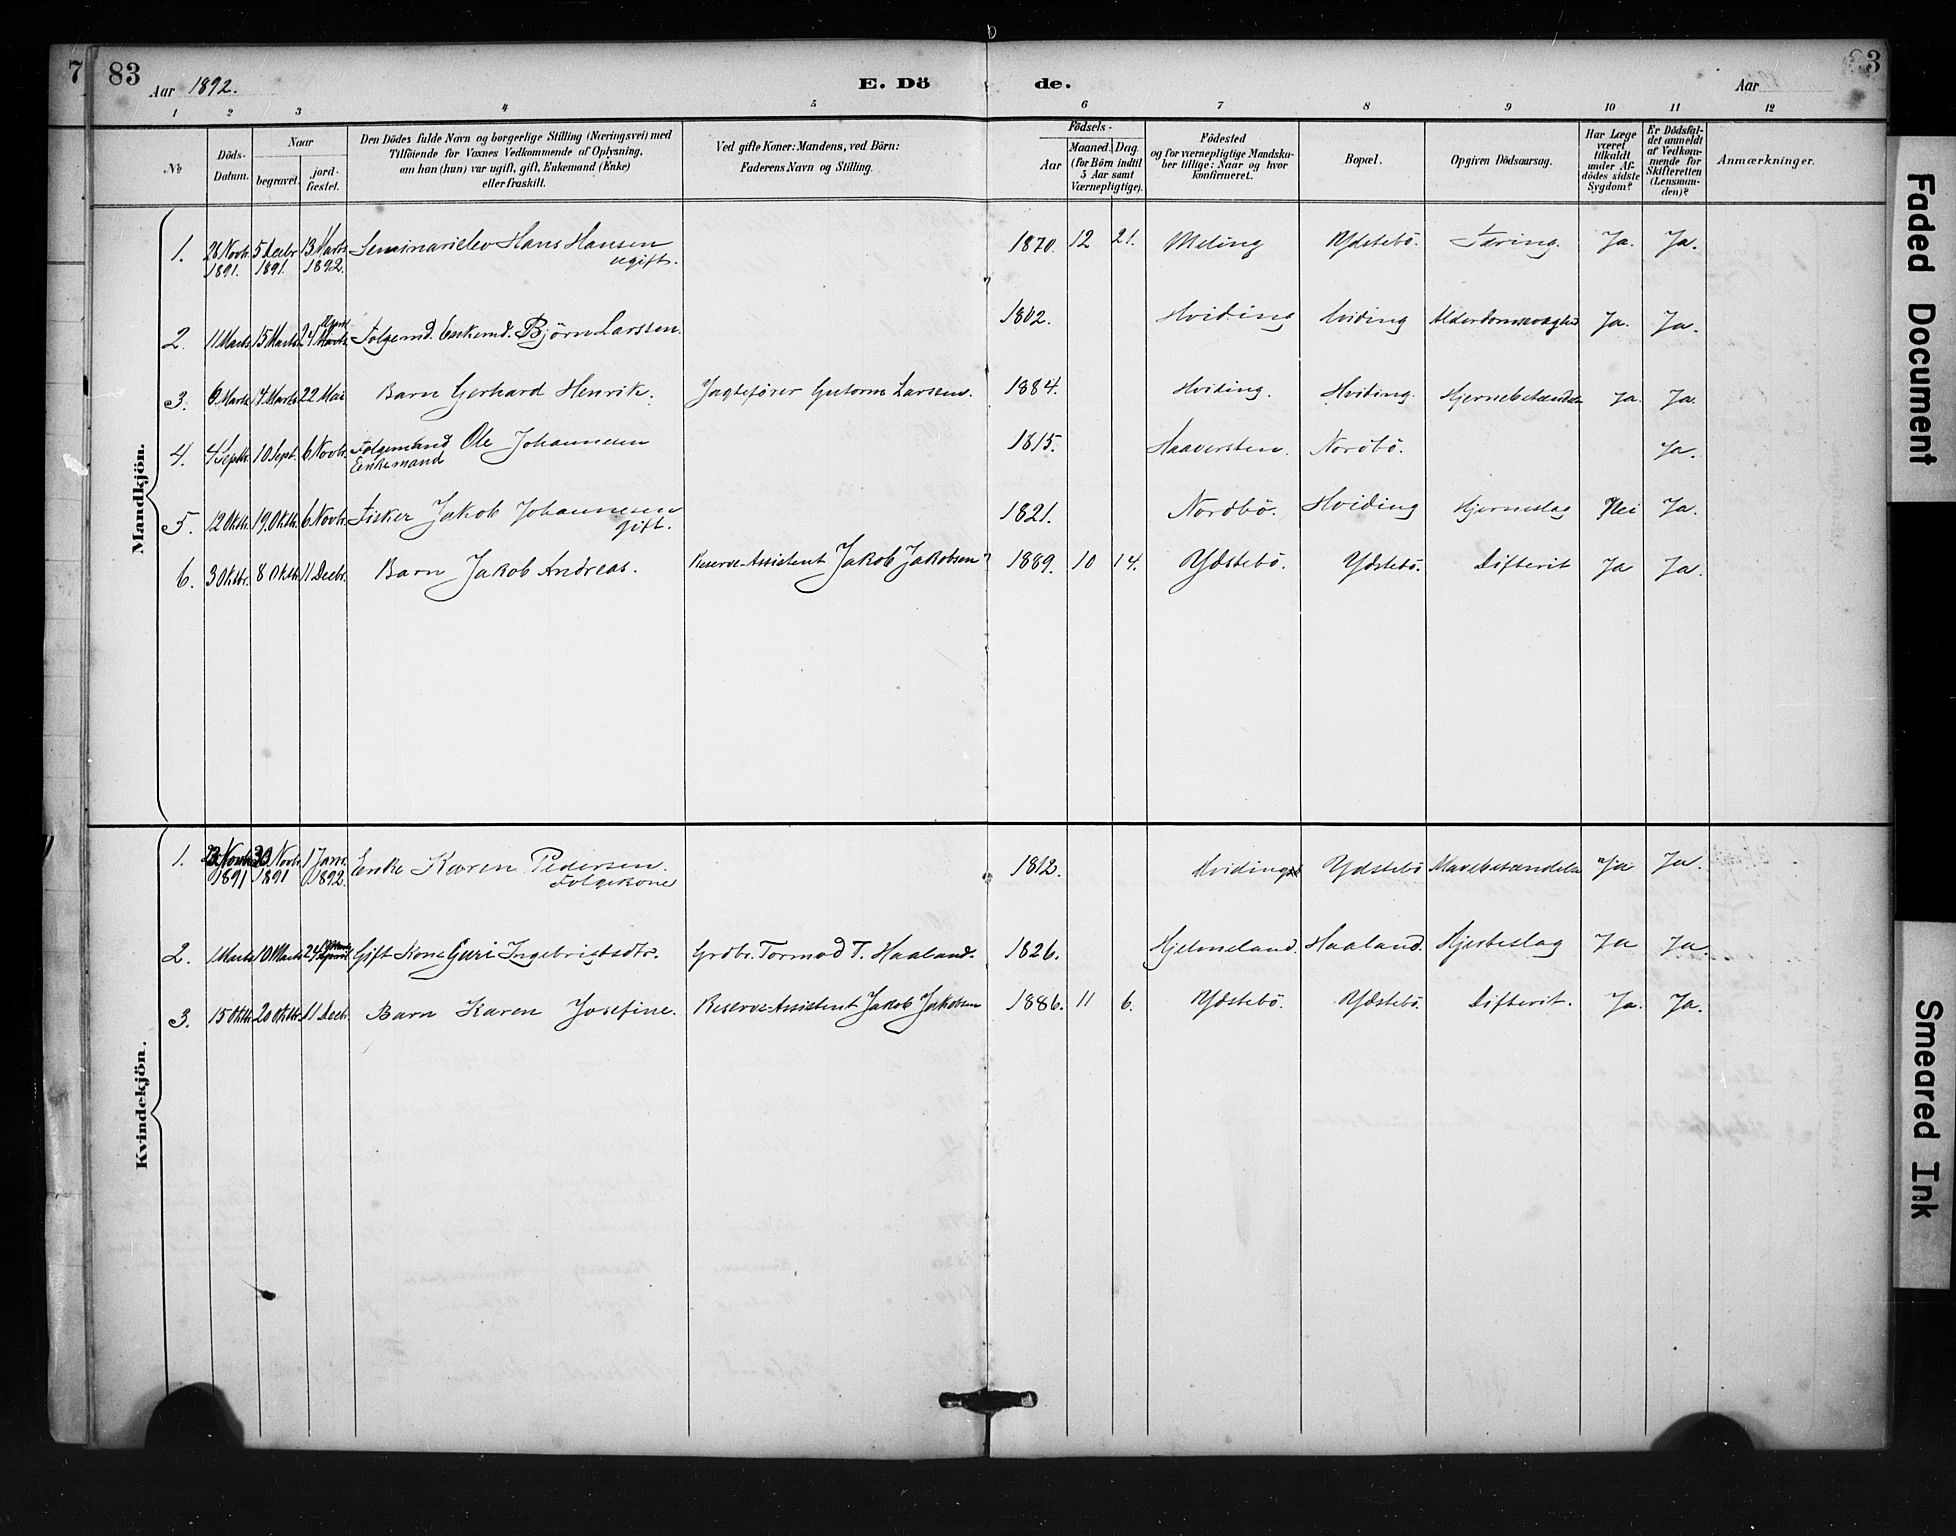 83
Aar 1892.
E. Döde.
Aar
3
7
1 2 3 4 5 6 7 8 9 10 11 12
№
Döds-Datum.
Naar
begravet.
jord-fæstet.
Den Dödes fulde Navn og borgerlige Stilling (Næringsvei) med
Tilföiende for Voxnes Vedkommende af Oplysning,
om han (hun) var ugift, gift, Enkemand (Enke)
eller fraskilt.
Ved gifte Koner: Mandens, ved Börn:
Faderens Navn og Stilling.
Födsels-
Aar
Maaned. Dag.
(for Börn indtil
5 Aar samt
Værnepligtige).
Födested
og for værnepligtige Mandska-
ber tillige: Naar og hvor
konfirmeret.
Bopæl.
Opgiven Dödsaarsag.
Har Læge
været
tilkaldt
under Af-
dödes sidste
Sygdom?
Er Dödsfal-
det anmeldt
af Vedkom-
mende for
Skifteretten
(Lensman-
den)?
Anmærkninger.
Mandkjön.
1. 28 Novbr 1891. 5 Decbr 1891. 13 Marts 1892. Seminarielev Hans Hansen ugift. 1870. 12 21. Meling Ydstebö. Tæring. Ja. Ja.
2. 11 Marts 15 Marts 24 April Folgemd. Enkemd. Björn Larssen. 1802. Hviding Hviding Alderdomssvaghed Ja. Ja.
3. Marts 14 Marts 22 Mai Barn Gerhard Henrik. Jagtefører Gutorm Larssen. 1884. Hviding. Hviding. Hjernebetændelse Ja. Ja.
4. 4 Septbr. 10 Sept. 6 Novbr. Folgemand Enkemand Ole Johannesen 1815. Haaversten. Nordbö. Ja.
5. 12 Oktbr. 19. Oktbr. 6 Novbr. Fisker Jakob Johannesen gift. 1821. Nordbö. Hviding Hjerneslag Nei Ja.
6. 3 Oktbr. 8 Oktbr. 11 Decbr. Barn Jakob Andreas. Reserve-Assistent Jakob Jakobsen 1889. 10 14. Ydstebö. Ydstebö. Difterit Ja Ja.
Kvindekjön.
1. Novbr. 1891 Novbr. 1891 1 Jan. 1892. Enke Karen Pedersen. Folgekone 1812. Hviding Ydstebö Mavebetændelse Ja Ja.
2. 1 Marts 10 Marts 24 Gift Kone Guri Ingebrigtsdtr. Grdbr. Tormod T. Haaland. 1826. Hjelmeland. Haaland. Hjerteslag Ja Ja.
3. 15 Oktbr. 20 Oktbr. 11 Decbr. Barn Karen Josefine. Reserve-Assistent Jakob Jakobsen 1886. 11 6. Ydstebö. Ydstebö. Difterit. Ja. Ja.
Faded Document
Smeared Ink